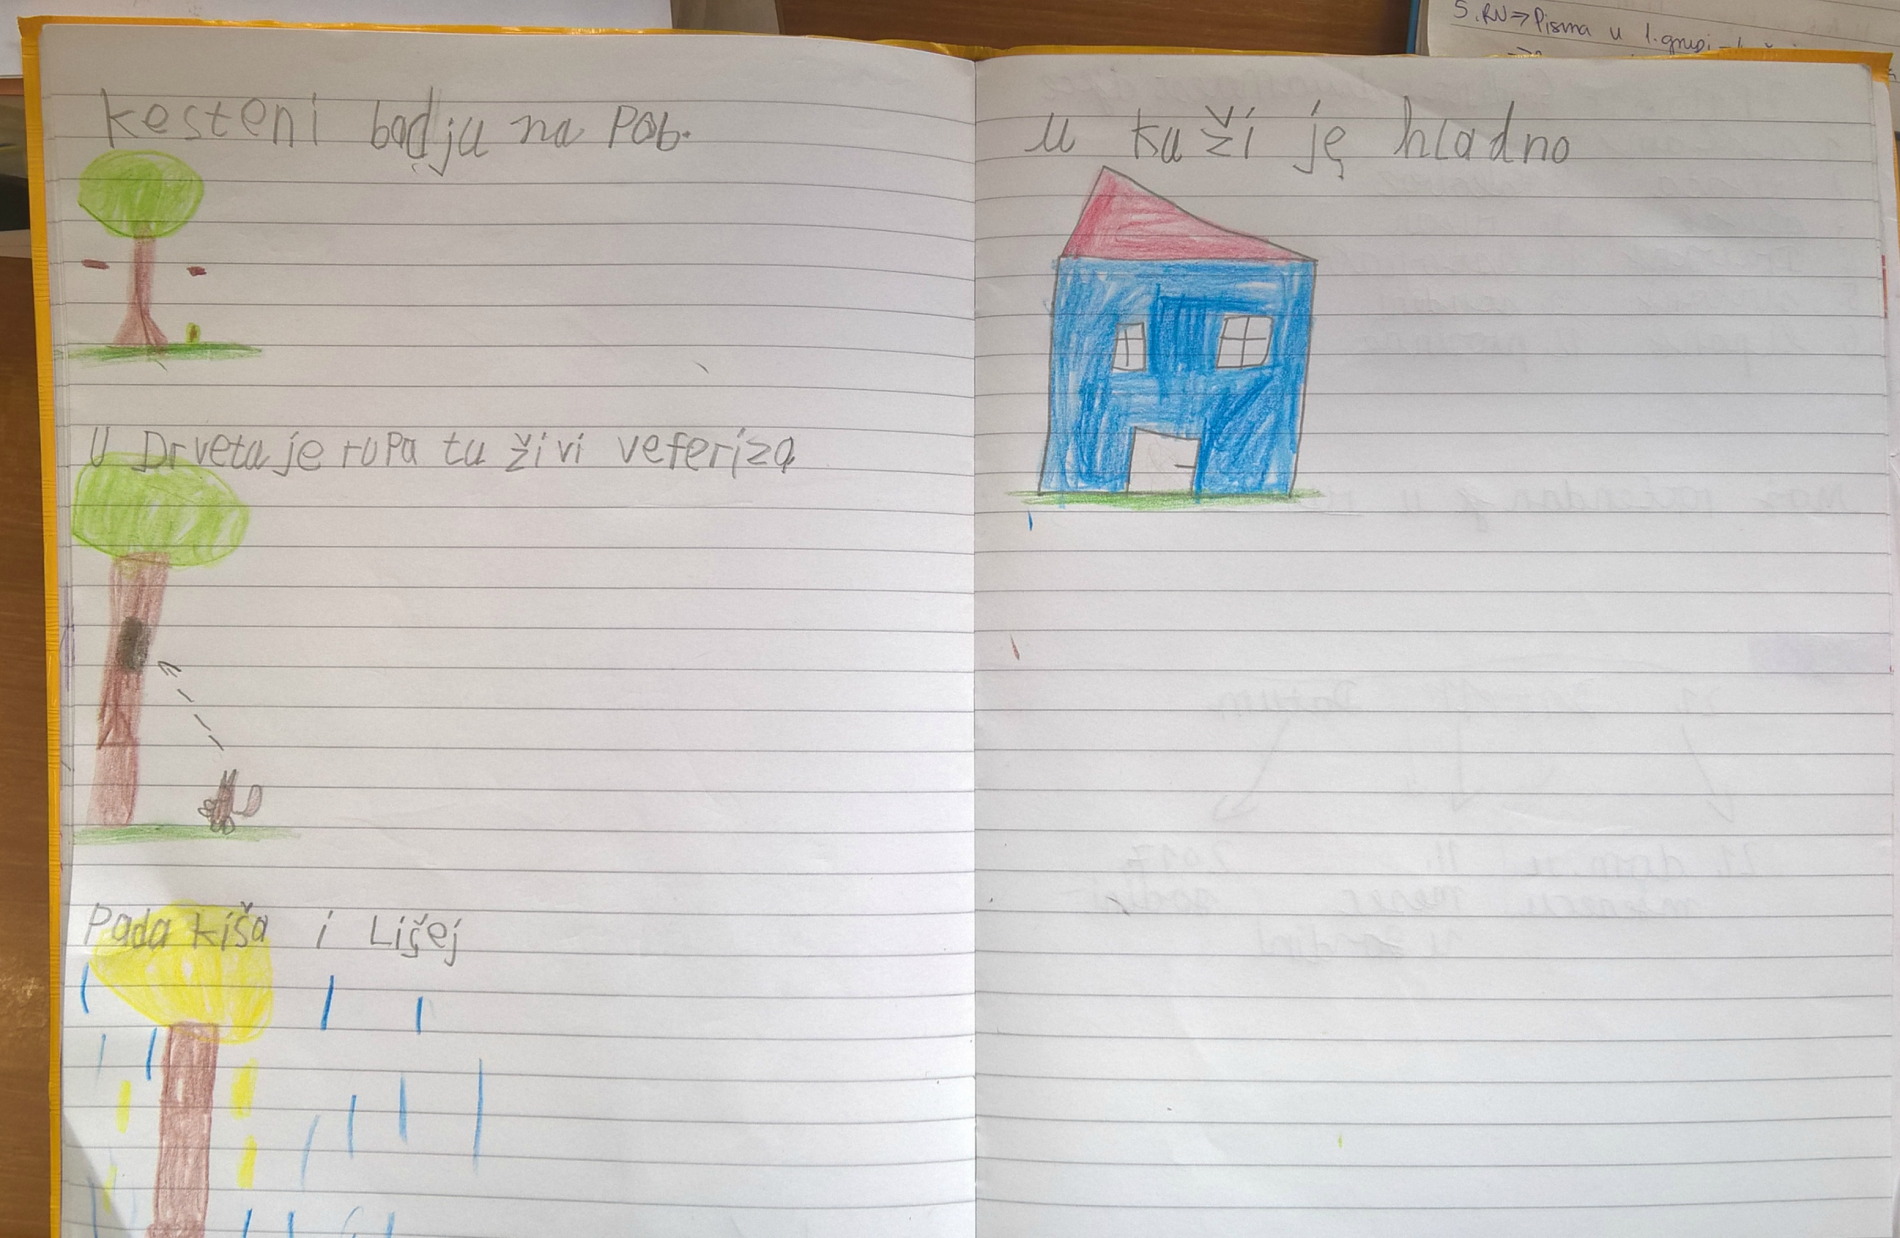 kesteni badju na Pob.
U Drveta je rupa tu živi veferiza
Pada kiša i Ližej
u kuži ję hladno
5. RN => Pisma u 1. grupi